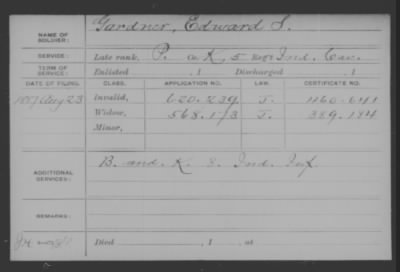 NAME OF SOLDIER: Gardner, Edward S.
SERVICE: Late rank, P. Co. K, 5 Reg't Ind. Cav.
TERM OF SERVICE: Enlisted , 1 Discharged , 1
DATE OF FILING. CLASS. APPLICATION NO. LAW. CERTIFICATE NO.
1887 Aug 23 Invalid, 620.239 J. 460.641
Widow, 568.173 J. 389.184
Minor,
ADDITIONAL SERVICES: B. and K. 8. Ind. Inf.
REMARKS:
Died , 1 , at